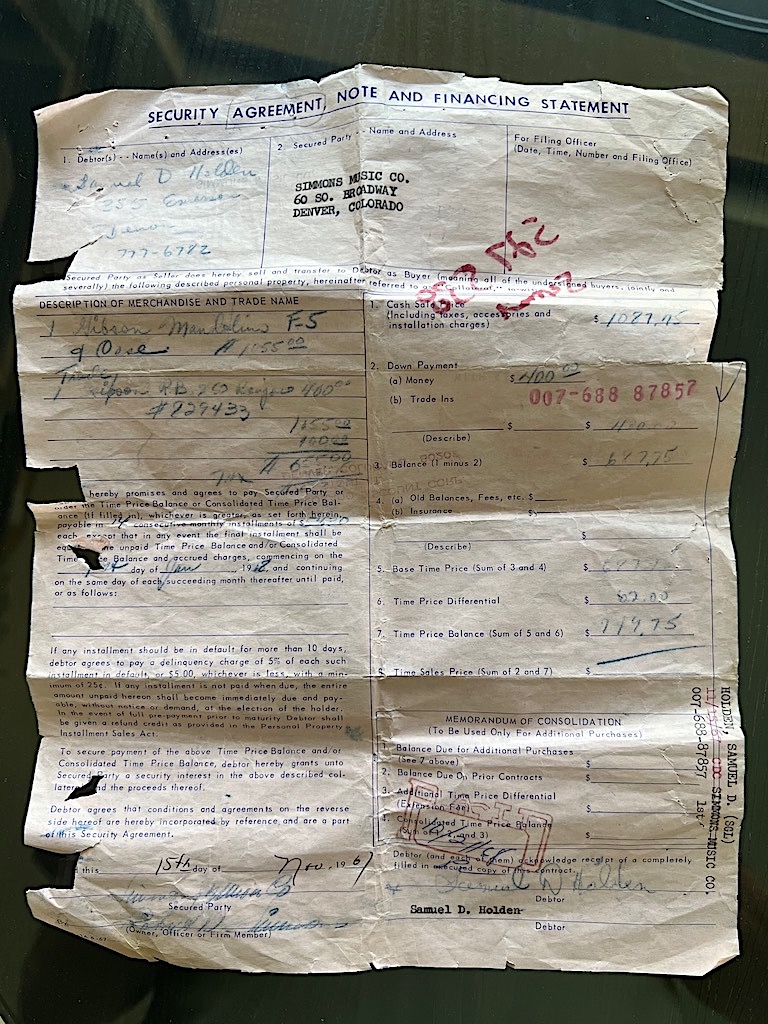 SECURITY AGREEMENT, NOTE AND FINANCING STATEMENT
1. Debtor(s) -- Name(s) and Address(es)
Samuel D Holden
Emerson
777-6782
2. Secured Party -- Name and Address
SIMMONS MUSIC CO.
60 SO. BROADWAY
DENVER, COLORADO
For Filing Officer
(Date, Time, Number and Filing Office)
Secured Party as Seller does hereby sell and transfer to Debtor as Buyer (meaning all of the undersigned buyers, jointly and
severally) the following described personal property, hereinafter referred to as
DESCRIPTION OF MERCHANDISE AND TRADE NAME
1 Gibson Mandolin F-5
& Case # 1055 00
Trade
1 Gibson RB 250 Banjo 400 00
#829433
1055 00
400 00
Tax
hereby promises and agrees to pay Secured Party or
order the Time Price Balance or Consolidated Time Price Bal-
ance (if filled in), whichever is greater, as set forth herein,
payable in consecutive monthly installments of $
each, except that in any event the final installment shall be
unpaid Time Price Balance and/or Consolidated
Balance and accrued charges, commencing on the
day of Jan, 19 and continuing
on the same day of each succeeding month thereafter until paid,
or as follows:
If any installment should be in default for more than 10 days,
debtor agrees to pay a delinquency charge of 5% of each such
installment in default, or $5.00, whichever is less, with a min-
imum of 25¢. If any installment is not paid when due, the entire
amount unpaid hereon shall become immediately due and pay-
able, without notice or demand, at the election of the holder.
In the event of full pre-payment prior to maturity Debtor shall
be given a refund credit as provided in the Personal Property
Installment Sales Act.
To secure payment of the above Time Price Balance and/or
Consolidated Time Price Balance, debtor hereby grants unto
Secured Party a security interest in the above described col-
and the proceeds thereof.
Debtor agrees that conditions and agreements on the reverse
side hereof are hereby incorporated by reference and are a part
of this Security Agreement.
this 15th day of Nov. 1967
Simmons Music Co
Secured Party
(Owner, Officer or Firm Member)
1. Cash Sale Price
(Including taxes, accessories and
installation charges) $ 1087.75
2. Down Payment
(a) Money $ 400 00
(b) Trade Ins
007-688 87857
$ $ 400.00
(Describe)
3. Balance (1 minus 2) $ 687.75
4. (a) Old Balances, Fees, etc. $
(b) Insurance $
$
(Describe)
5. Base Time Price (Sum of 3 and 4) $ 687.75
6. Time Price Differential $
7. Time Price Balance (Sum of 5 and 6) $
8. Time Sales Price (Sum of 2 and 7) $
MEMORANDUM OF CONSOLIDATION
(To Be Used Only For Additional Purchases)
1. Balance Due for Additional Purchases
(See 7 above) $
2. Balance Due On Prior Contracts $
3. Additional Time Price Differential
(Extension Fee) $
4. Consolidated Time Price Balance
(Sum of 1, 2, and 3) $
Debtor (and each of them) acknowledge receipt of a completely
filled in executed copy of this contract.
Samuel D Holden
Debtor
Samuel D. Holden
Debtor
HOLDEN, SAMUEL D. (SGL)
CDC SIMMONS MUSIC CO.
007-688-87857 1st